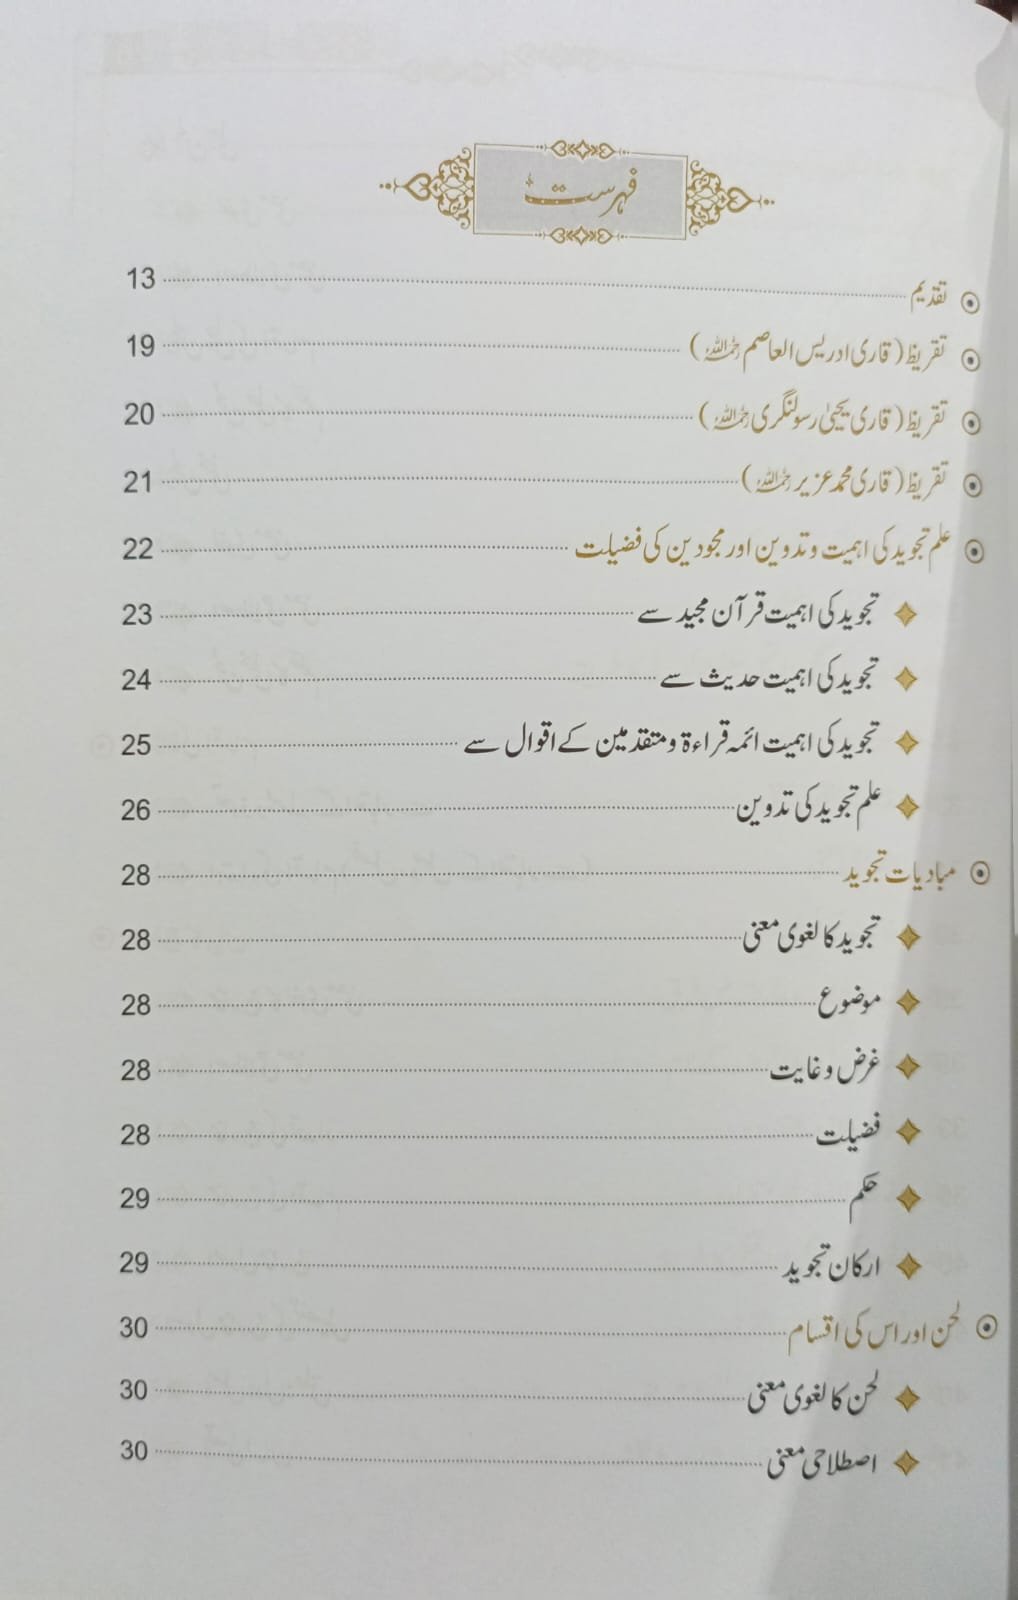 فہرست
تقدیم 13
تقریظ (قاری ادریس العاصم رحمہ اللہ) 19
تقریظ (قاری یحییٰ رسولنگری رحمہ اللہ) 20
تقریظ (قاری محمد عزیر رحمہ اللہ) 21
علم تجوید کی اہمیت و تدوین اور مجودین کی فضیلت 22
تجوید کی اہمیت قرآن مجید سے 23
تجوید کی اہمیت حدیث سے 24
تجوید کی اہمیت ائمہ قراءۃ و متقدمین کے اقوال سے 25
علم تجوید کی تدوین 26
مبادیات تجوید 28
تجوید کا لغوی معنی 28
موضوع 28
غرض و غایت 28
فضیلت 28
حکم 29
ارکان تجوید 29
لحن اور اس کی اقسام 30
لحن کا لغوی معنی 30
اصطلاحی معنی 30